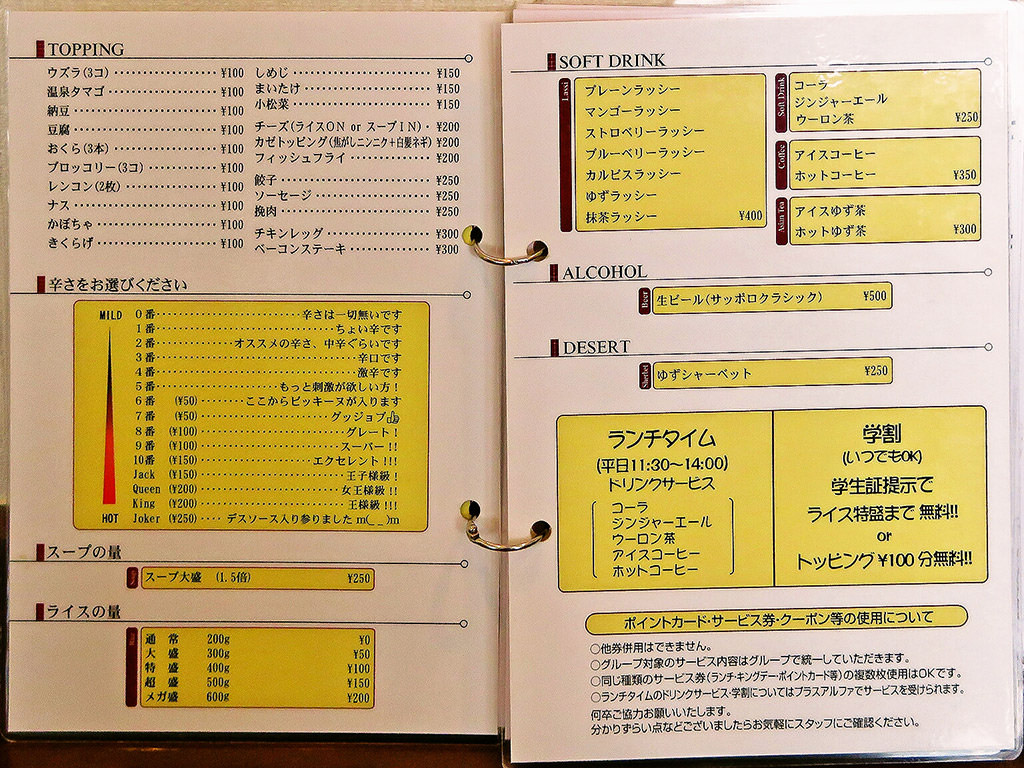 TOPPING
ウズラ(3コ) ¥100
温泉タマゴ ¥100
納豆 ¥100
豆腐 ¥100
おくら(3本) ¥100
ブロッコリー(3コ) ¥100
レンコン(2枚) ¥100
ナス ¥100
かぼちゃ ¥100
きくらげ ¥100
しめじ ¥150
まいたけ ¥150
小松菜 ¥150
チーズ(ライスON or スープIN) ¥200
カゼトッピング(焦がしニンニク+白髪ネギ) ¥200
フィッシュフライ ¥200
餃子 ¥250
ソーセージ ¥250
挽肉 ¥250
チキンレッグ ¥300
ベーコンステーキ ¥300
辛さをお選びください
MILD
0番 辛さは一切無いです
1番 ちょい辛です
2番 オススメの辛さ、中辛ぐらいです
3番 辛口です
4番 激辛です
5番 もっと刺激が欲しい方!
6番 (¥50) ここからピッキーヌが入ります
7番 (¥50) グッジョブ
8番 (¥100) グレート!
9番 (¥100) スーパー!!
10番 (¥150) エクセレント!!!
Jack (¥150) 王子様級!
Queen (¥200) 女王様級!!
King (¥200) 王様級!!!
HOT Joker (¥250) デスソース入り参りました m(_ _)m
スープの量
スープ大盛 (1.5倍) ¥250
ライスの量
通常 200g ¥0
大盛 300g ¥50
特盛 400g ¥100
超盛 500g ¥150
メガ盛 600g ¥200
SOFT DRINK
Lassi
プレーンラッシー
マンゴーラッシー
ストロベリーラッシー
ブルーベリーラッシー
カルピスラッシー
ゆずラッシー
抹茶ラッシー ¥400
Soft Drink
コーラ
ジンジャーエール
ウーロン茶 ¥250
Coffee
アイスコーヒー
ホットコーヒー ¥350
Asian Tea
アイスゆず茶
ホットゆず茶 ¥300
ALCOHOL
Beer
生ビール(サッポロクラシック) ¥500
DESERT
Sherbet
ゆずシャーベット ¥250
ランチタイム
(平日11:30〜14:00)
ドリンクサービス
コーラ
ジンジャーエール
ウーロン茶
アイスコーヒー
ホットコーヒー
学割
(いつでもOK)
学生証提示で
ライス特盛まで 無料!!
or
トッピング ¥100 分無料!!
ポイントカード・サービス券・クーポン等の使用について
○他券併用はできません。
○グループ対象のサービス内容はグループで統一していただきます。
○同じ種類のサービス券(ランチキングデー・ポイントカード等)の複数枚使用はOKです。
○ランチタイムのドリンクサービス・学割についてはプラスアルファでサービスを受けられます。
何卒ご協力お願いいたします。
分かりずらい点などございましたらお気軽にスタッフにご確認ください。